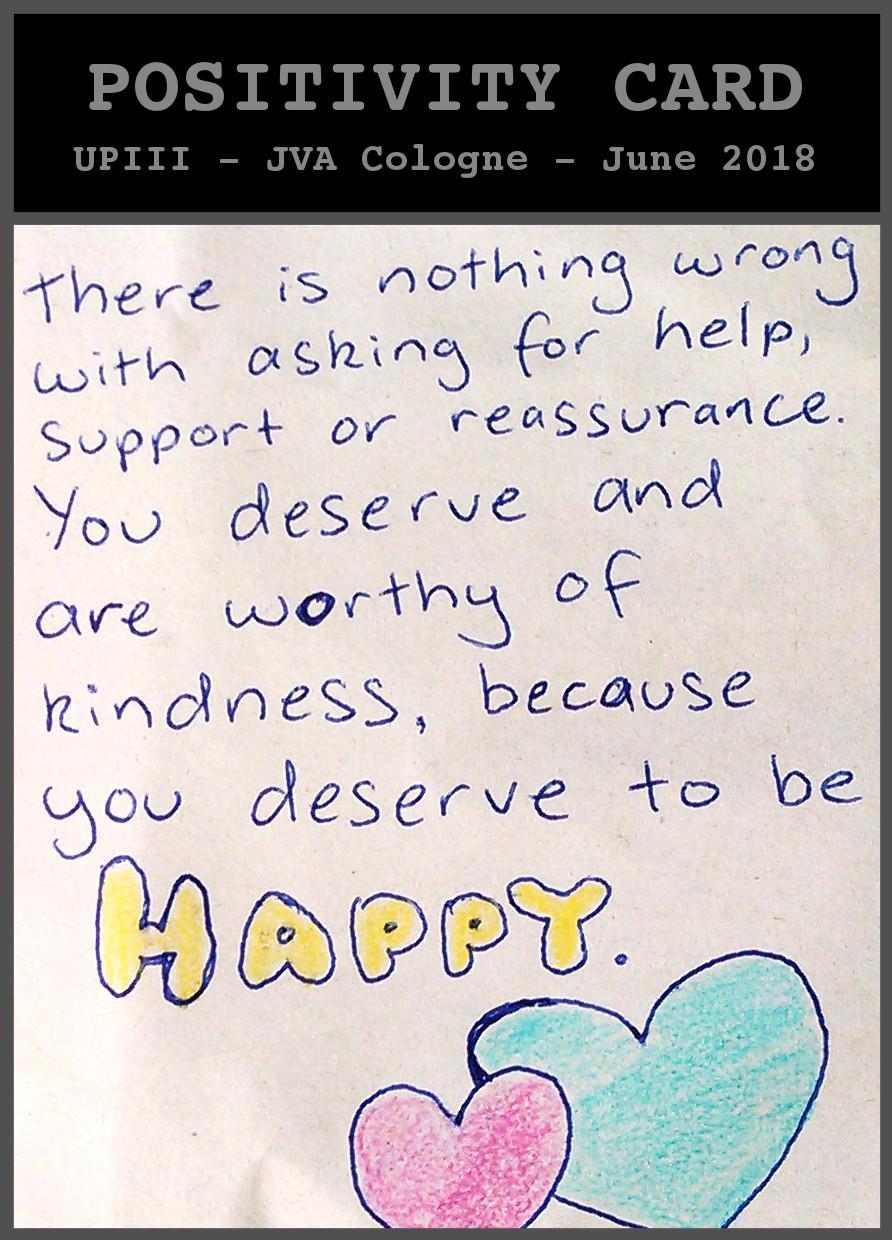 POSITIVITY CARD
UPIII - JVA Cologne - June 2018
There is nothing wrong
with asking for help,
support or reassurance.
You deserve and
are worthy of
kindness, because
you deserve to be
HAPPY.